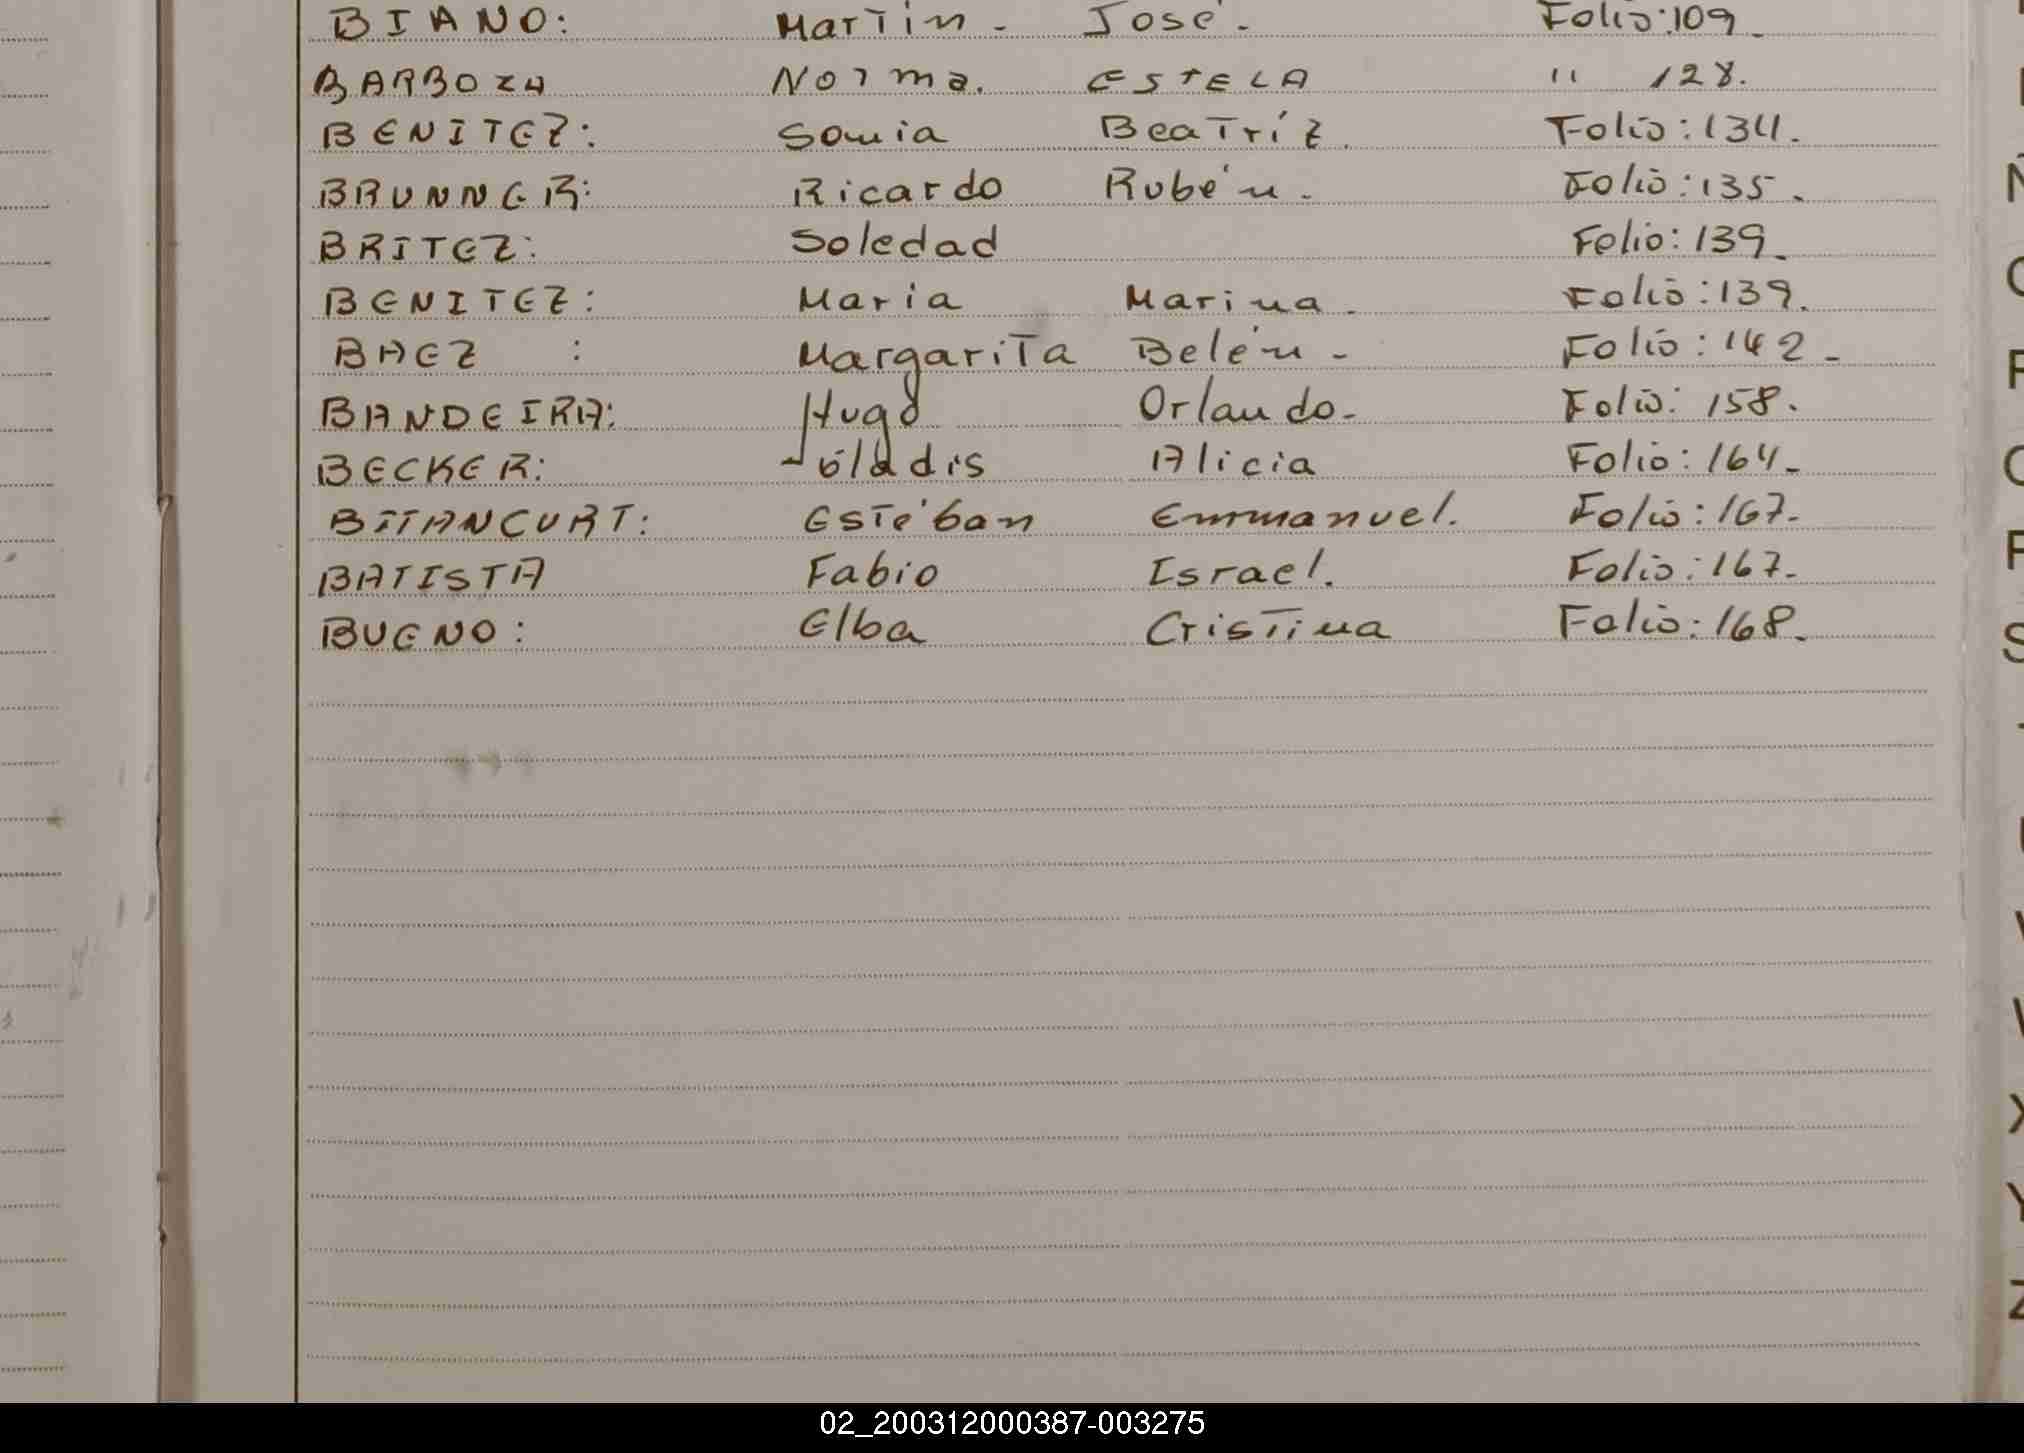 BIANO: Martin - José - Folio: 109_
BARBOZA Norma. ESTELA " 128.
BENITEZ: Sonia Beatríz. Folio: 134.
BRUNNER: Ricardo Rubén - Folio: 135.
BRITEZ: Soledad Folio: 139_
BENITEZ: Maria Marina - Folio: 139.
BAEZ : Margarita Belén - Folio: 142 -
BANDEIRA: Hugo Orlando - Folio: 158.
BECKER: Gládis Alicia Folio: 164 -
BITANCURT: Estéban Emmanuel. Folio: 167 -
BATISTA Fabio Israel. Folio: 167 -
BUENO: Elba Cristina Folio: 168_
Ñ
P
S
X
Y
Z
02_200312000387-003275